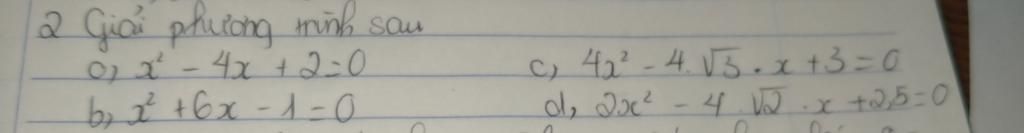 2 Giải phương trình sau
a, x² - 4x + 2 = 0
b, x² + 6x - 1 = 0
c, 4x² - 4.√3.x + 3 = 0
d, 2x² - 4√2.x + 2,5 = 0